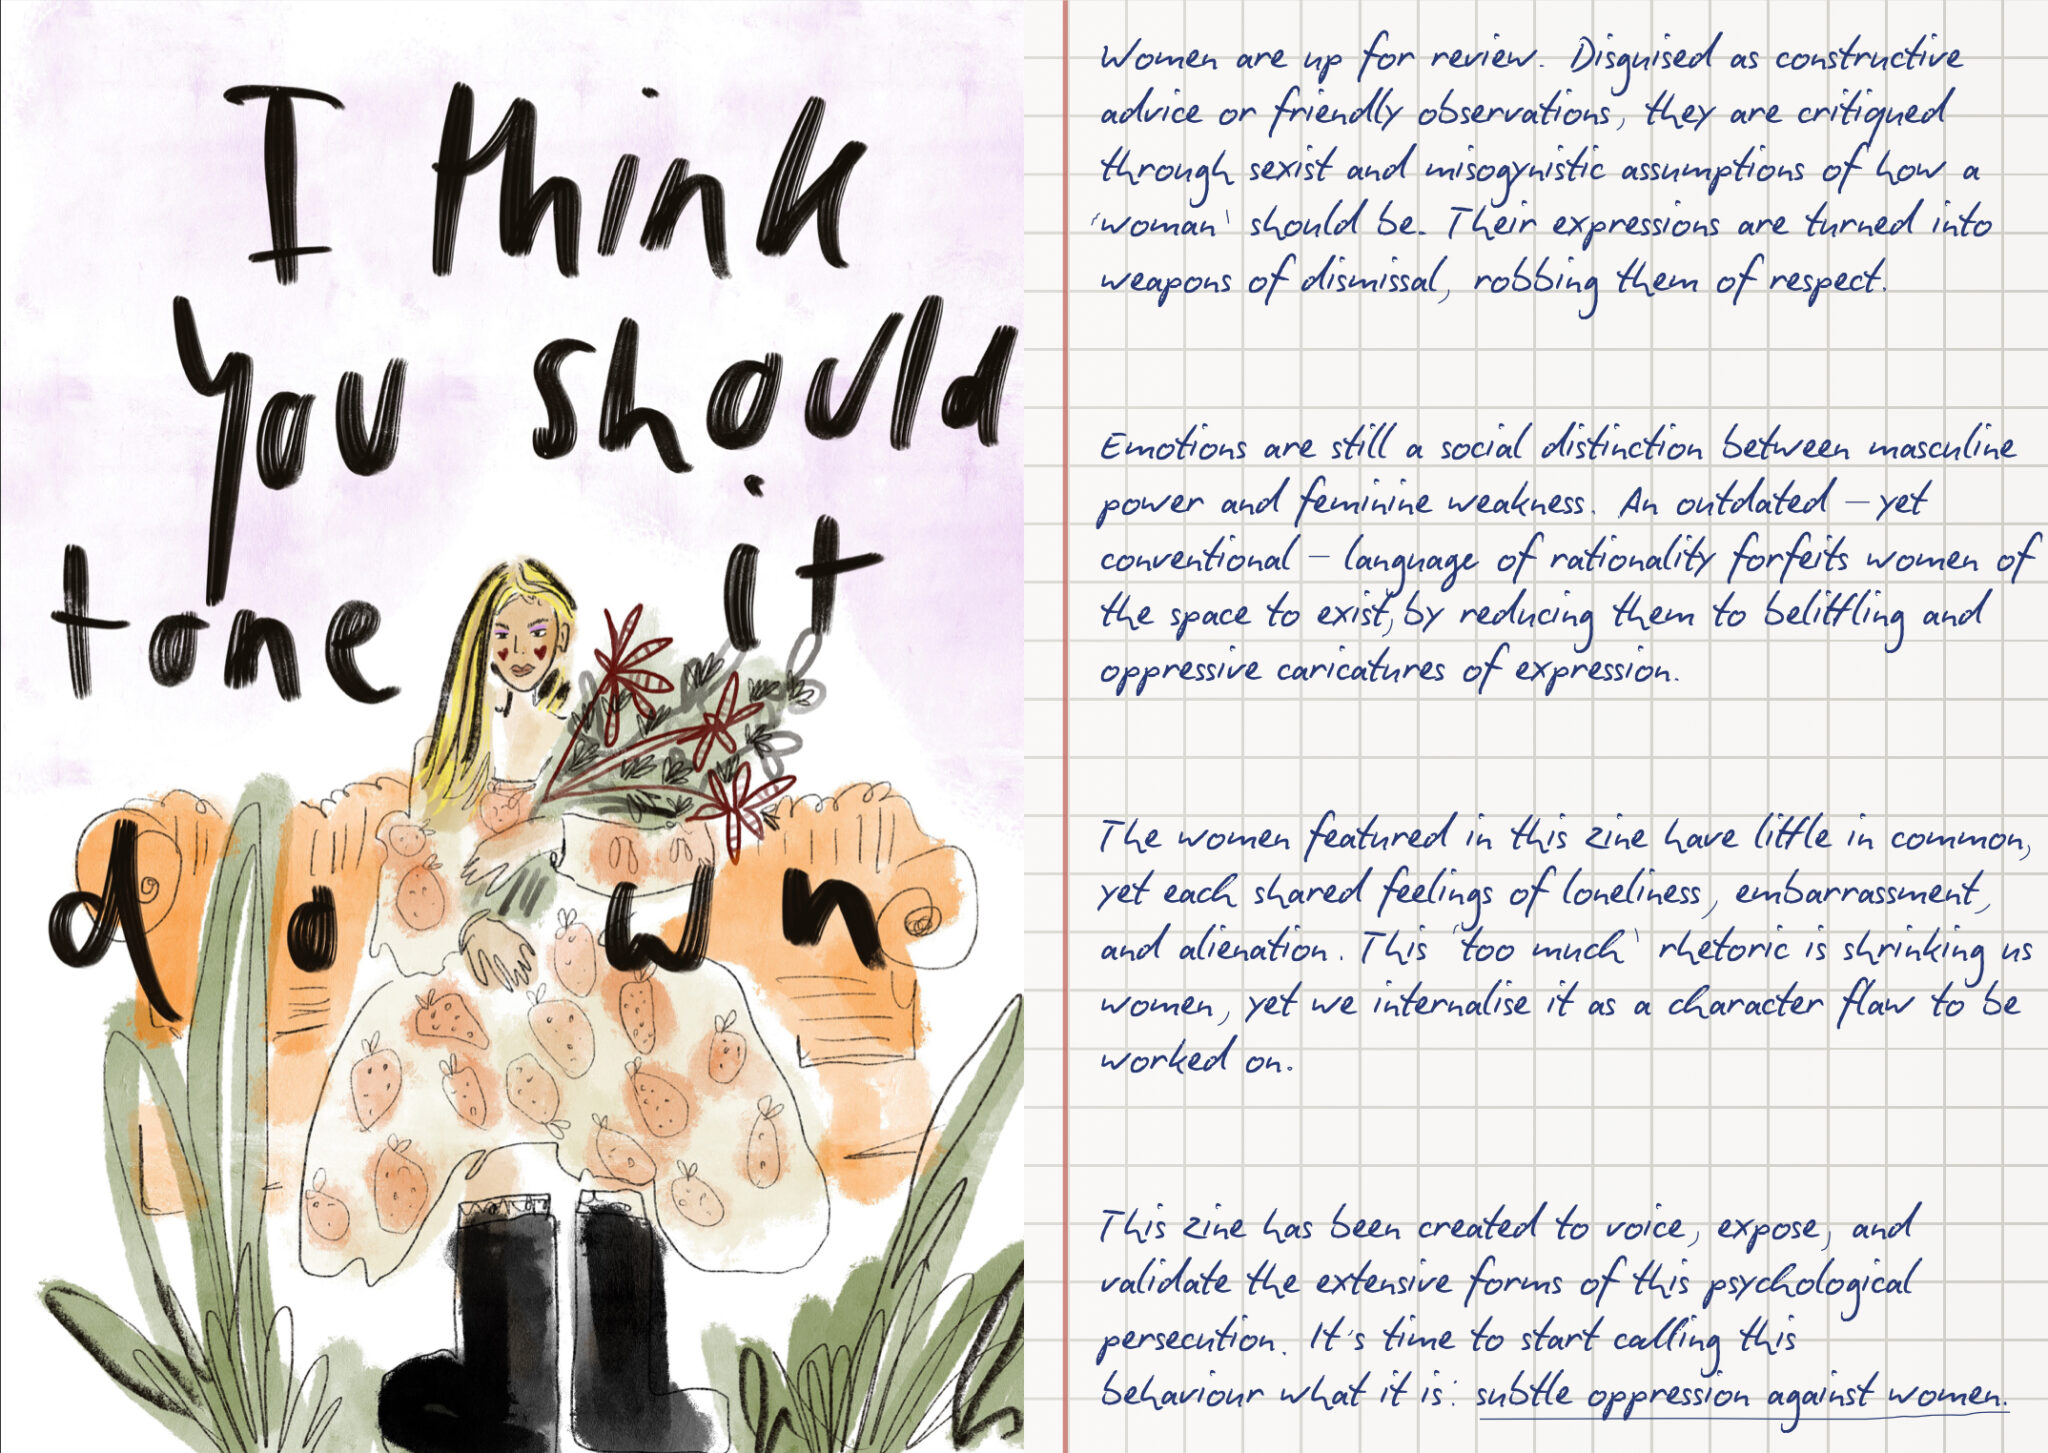 I think
you should
tone it
down
Women are up for review. Disguised as constructive
advice or friendly observations, they are critiqued
through sexist and misogynistic assumptions of how a
'woman' should be. Their expressions are turned into
weapons of dismissal, robbing them of respect.
Emotions are still a social distinction between masculine
power and feminine weakness. An outdated – yet
conventional – language of rationality forfeits women of
the space to exist, by reducing them to belittling and
oppressive caricatures of expression.
The women featured in this zine have little in common,
yet each shared feelings of loneliness, embarrassment,
and alienation. This 'too much' rhetoric is shrinking us
women, yet we internalise it as a character flaw to be
worked on.
This zine has been created to voice, expose, and
validate the extensive forms of this psychological
persecution. It's time to start calling this
behaviour what it is: subtle oppression against women.